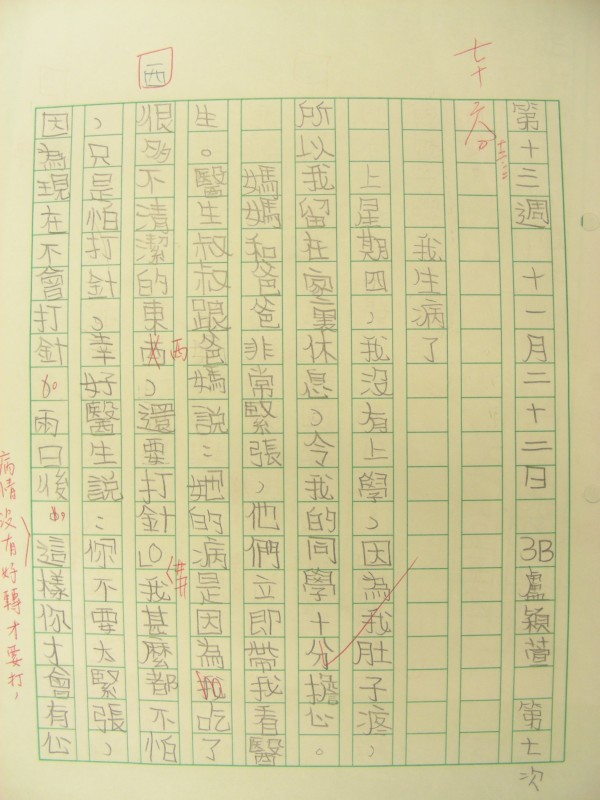 第十三週 十一月二十二日 3B盧穎萱 第七次
七十六分
我生病了
上星期四，我沒有上學，因為我肚子疼，
所以我留在家裏休息，令我的同學十分擔心。
媽媽和爸爸非常緊張，他們立即帶我看醫
生。醫生叔叔跟爸媽說：她的病是因為她吃了
西
很多不清潔的東西，還要打針。我甚麼都不怕
西
，只是怕打針，幸好醫生說：你不要太緊張，
因為現在不會打針如兩日後這樣你才會有心
病情沒有好轉才要打，